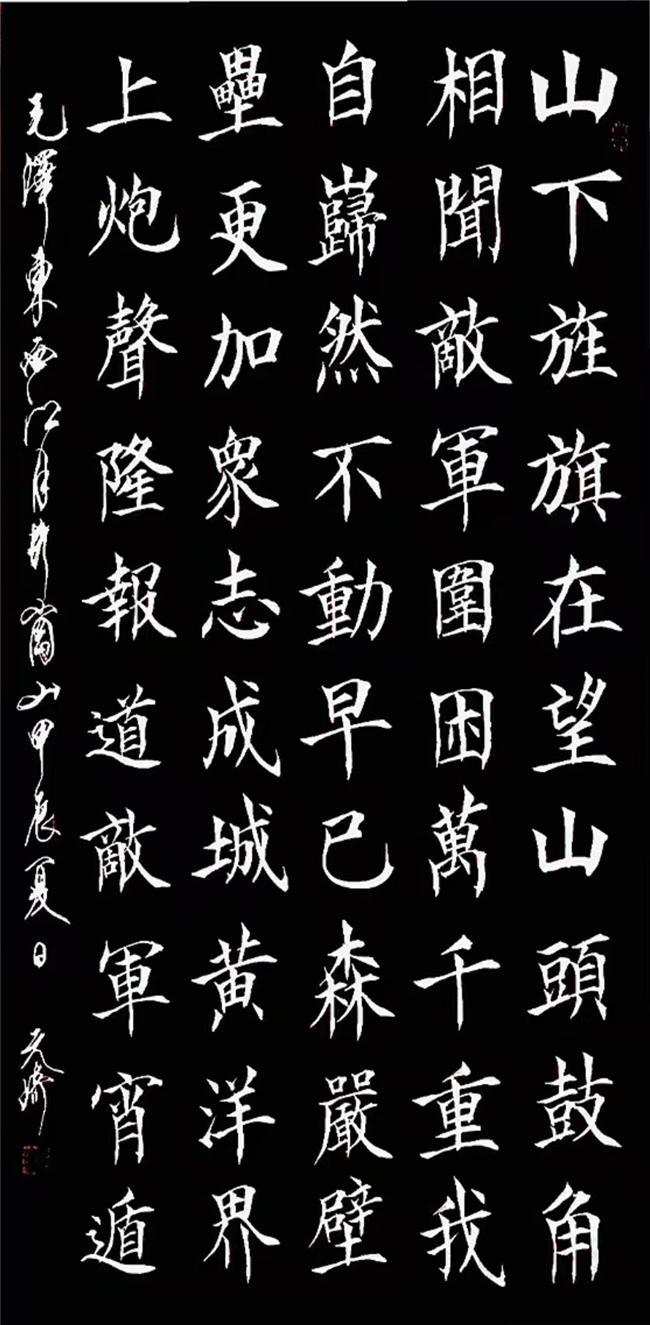 山下旌旗在望山頭鼓角
相聞敵軍圍困萬千重我
自巋然不動早已森嚴壁
壘更加衆志成城黃洋界
上炮聲隆報道敵軍宵遁
毛澤東西江月井崗山甲辰夏日